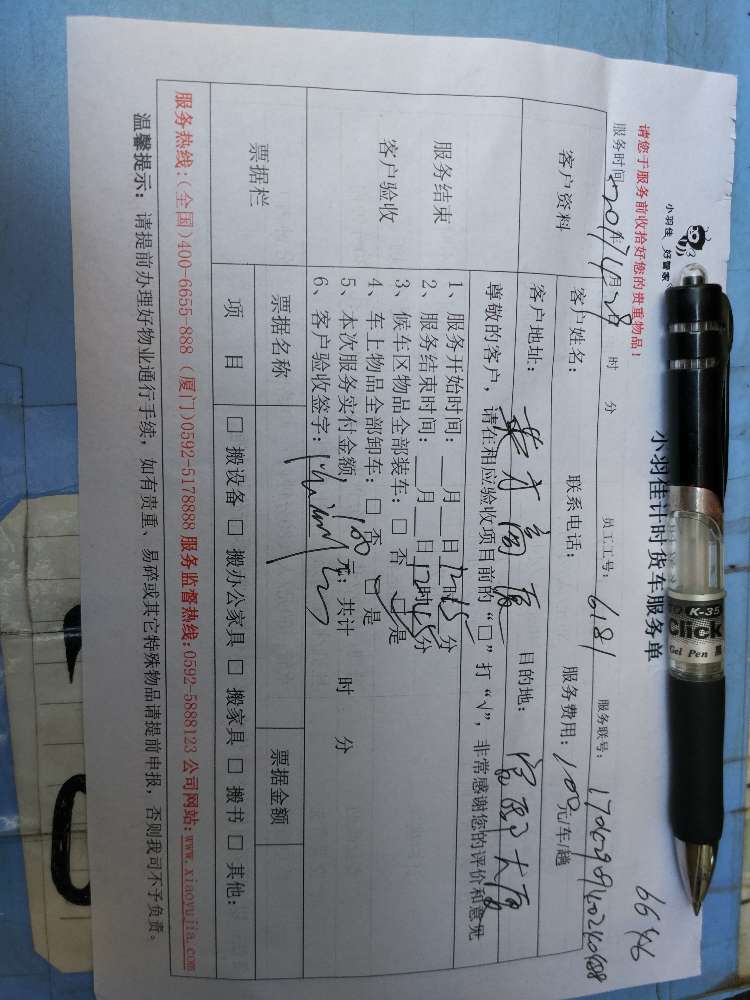 小羽佳 好管家
小羽佳计时货车服务单
6646
请您于服务前收拾好您的贵重物品！
服务时间: 2017年4月29日 时 分 员工工号: 6181 服务联号:
客户资料
客户姓名: 联系电话: 服务费用: 100元/车/趟
客户地址: 目的地: 大厦
服务结束
客户验收
尊敬的客户，请在相应验收项目前的“□”打“√”，非常感谢您的评价和意见
1、服务开始时间: __月__日12时15分
2、服务结束时间: __月__日12时45分
3、候车区物品全部装车: □ 否 □ 是
4、车上物品全部卸车: □ 否 □ 是
5、本次服务实付金额: 100元; 共计 时 分
6、客户验收签字:
票据栏
票据名称 票据金额
项 目 □ 搬设备 □ 搬办公家具 □ 搬家具 □ 搬书 □ 其他:
服务热线: (全国)400-6655-888 (厦门)0592-5178888 服务监督热线: 0592-5888123 公司网站: www.xiaoyujia.com
温馨提示: 请提前办理好物业通行手续，如有贵重、易碎或其它特殊物品请提前申报，否则我司不予负责。
K-35
Click
Gel Pen